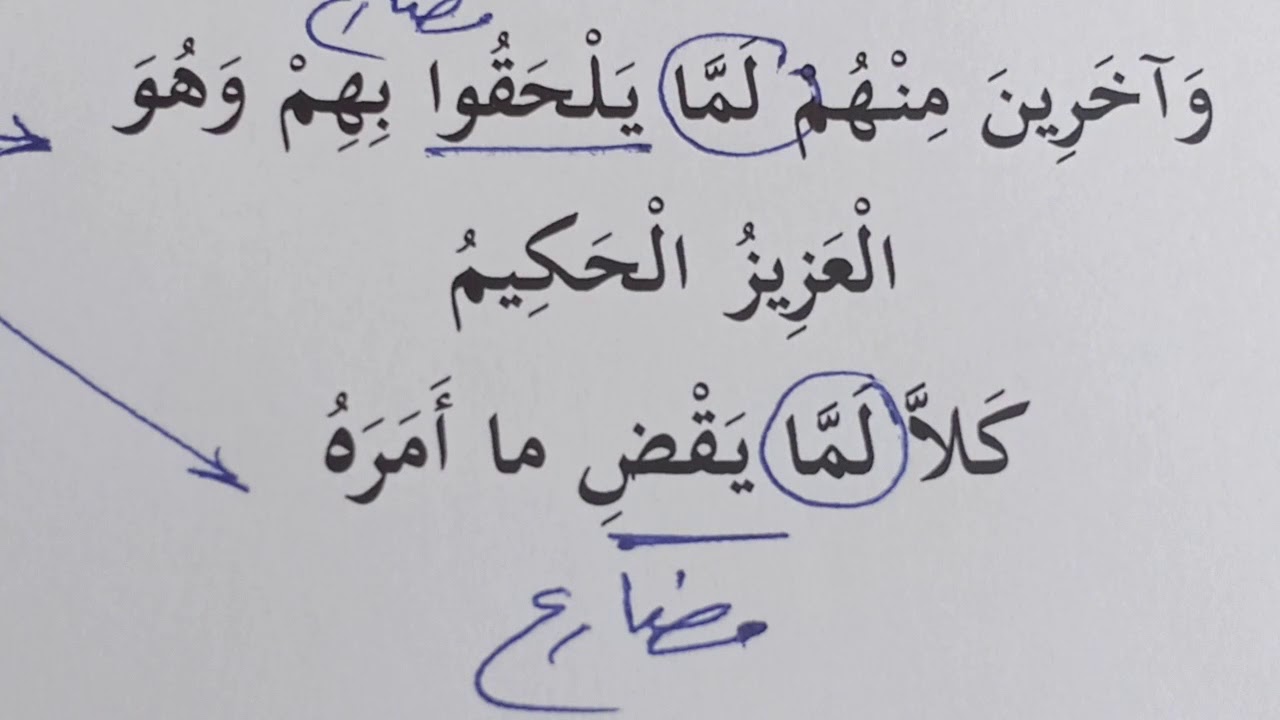 مضارع
وَآخَرِينَ مِنْهُمْ لَمَّا يَلْحَقُوا بِهِمْ وَهُوَ
الْعَزِيزُ الْحَكِيمُ
كَلاَّ لَمَّا يَقْضِ ما أَمَرَهُ
مضارع